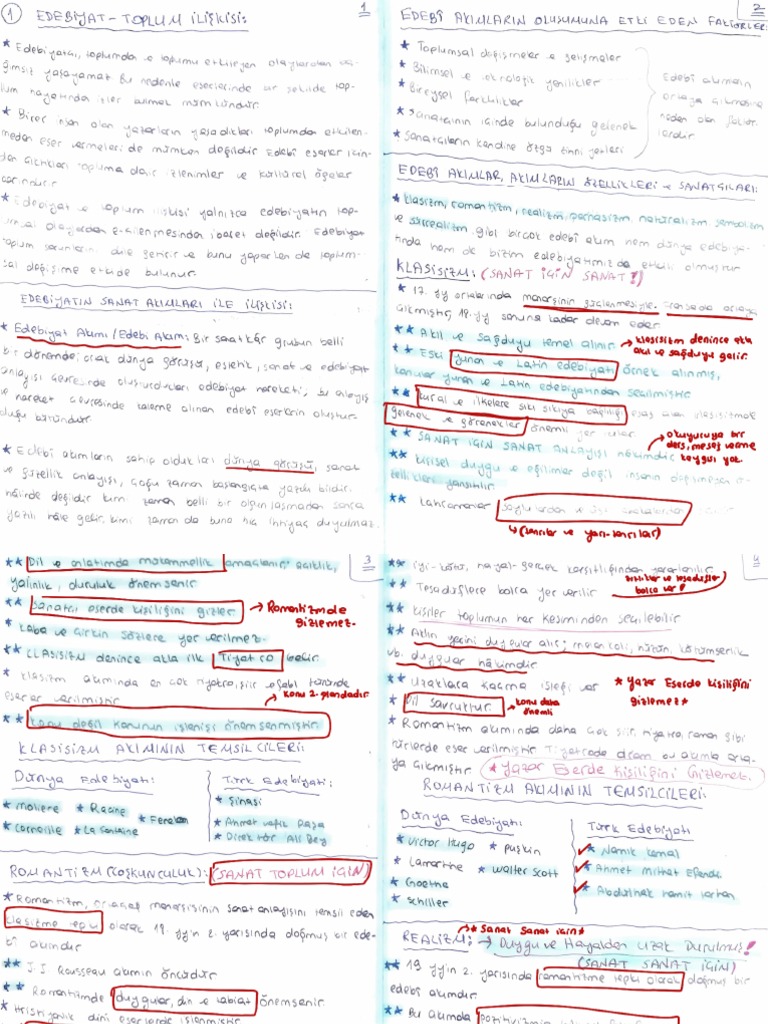 1 EDEBİYAT-TOPLUM İLİŞKİSİ:
1
* Edebiyatçı, toplumda ve toplumu etkileyen olaylardan ba-
ğımsız yaşayamaz. Bu nedenle eserlerinde bir şekilde top-
lum hayatından izler almak mümkündür.
* Birer insan olan yazarların yaşadıkları toplumdan etkilen-
meden eser vermeleri de mümkün değildir. Edebi eserler için-
den çıktıkları topluma dair izlenimler ve kültürel öğeler
barındırır.
* Edebiyat ve toplum ilişkisi yalnızca edebiyatın top-
lumsal olaylardan etkilenmesinden ibaret değildir. Edebiyat
toplum sorunlarını dile getirir ve bunu yaparken de toplum-
sal değişime etkide bulunur.
EDEBİYATIN SANAT AKIMLARI İLE İLİŞKİSİ:
* Edebiyat Akımı/Edebi Akım: Bir sanatkâr grubun belli
bir dönemde; ortak dünya görüşü, estetik, sanat ve edebiyat
anlayışı çevresinde oluşturdukları edebiyat hareketi; bu anlayış
ve hareket çevresinde kaleme alınan edebi eserlerin oluştur-
duğu bütündür.
* Edebi akımların sahip oldukları dünya görüşü, sanat
ve güzellik anlayışı, çoğu zaman başlangıçta yazılı bildiri
hâlinde değildir. Kimi zaman belli bir olgunlaşmadan sonra
yazılı hâle gelir, kimi zaman da buna hiç ihtiyaç duyulmaz.
2
EDEBİ AKIMLARIN OLUŞUMUNA ETKİ EDEN FAKTÖRLER:
* Toplumsal değişmeler ve gelişmeler
* Bilimsel ve teknolojik yenilikler
* Bireysel farklılıklar
* Sanatçının içinde bulunduğu gelenek
* Sanatçıların kendine özgü yenleri
Edebi akımların
ortaya çıkmasına
neden olan faktör-
lerdir.
EDEBİ AKIMLAR, AKIMLARIN ÖZELLİKLERİ ve SANATÇILARI:
* Klasizm, romantizm, realizm, parnasizm, natüralizm, sembolizm
ve sürrealizm, gibi birçok edebi akım hem dünya edebiya-
tında hem de bizim edebiyatımızda etkili olmuştur
KLASİSİZM: (SANAT İÇİN SANAT!)
* 17. yy ortalarında monarşinin güçlenmesiyle Fransada ortaya
çıkmıştır, 18. yy sonuna kadar devam eder
** Akıl ve Sağduyu temel alınır. → klasisizm denince akla
akıl ve sağduyu gelir.
** Eski yunan ve Latin edebiyatı örnek alınmış,
konular yunan ve Latin edebiyatından seçilmiştir
** kural ve ilkelere sıkı sıkıya bağlılığı esas alan klasisizmde
gelenek ve görenekler önemli yer tutar.
** SANAT İÇİN SANAT ANLAYIŞI hâkimdir → okuyucuya bir
ders, mesaj verme
kaygısı yok.
** Kişisel duygu ve eğilimler değil insanın değişmeyen ö-
zellikleri yansıtılır
** Kahramanlar soylulardan ve
↳ (tanrılar ve yarı-tanrılar)
3
** Dil ve anlatımda mükemmellik amaçlanır; açıklık,
yalınlık, duruluk önemsenir
** Sanatçı eserde kişiliğini gizler → Romantizmde
gizlemez.
* Kaba ve çirkin sözlere yer verilmez.
** CLASİSİZM denince akla ilk Tiyatro gelir
* Klasizm akımında en çok tiyatro, şiir ve fabl türünde
eserler verilmiştir → Konu 2. plandadır
** Konu değil konunun işlenişi önemsenmiştir
KLASİSİZM AKIMININ TEMSİLCİLERİ:
Dünya Edebiyatı:
* Moliere * Racine
* Corneille * La Fontaine
Türk Edebiyatı:
* Şinasi
* Ahmet Vefik Paşa
* Direktör Ali Bey
ROMANTİZM (COŞKUNCULUK): (SANAT TOPLUM İÇİN)
* Romantizm, ortaçağ monarşisinin sanat anlayışını temsil eden
klasizme tepki olarak 18. yy'ın 2. yarısında doğmuş bir ede-
bi akımdır
** J.J. Rousseau akımın öncüsüdür
** Romantizmde duygular, din ve tabiat önemsenir.
* Hristiyanlık dini eserlerde işlenmiştir
4
** iyi-kötü, hayal-gerçek karşıtlığından yararlanılır.
** Tesadüflere bolca yer verilir
bolca var!
** kişiler toplumun her kesiminden seçilebilir
** Aklın yerini duygular alır; melankoli, hüzün, kötümserlik
vb. duygular hâkimdir
** Uzaklara kaçma isteği var * Yazar Eserde kişiliğini
gizlemez *
* Dil savruktur. → konu daha
önemli
* Romantizm akımında daha çok şiir, tiyatro, roman gibi
türlerde eser verilmiştir Tiyatroda dram bu akımla orta-
ya çıkmıştır * Yazar Eserde Kişiliğini Gizlemez.
ROMANTİZM AKIMININ TEMSİLCİLERİ:
Dünya Edebiyatı:
* Victor Hugo * Puşkin
* Lamartine * Walter Scott
* Goethe
* Schiller
Türk Edebiyatı
* Namık Kemal
* Ahmet Mithat Efendi
* Abdülhak Hamit Tarhan
* Sanat Sanat için *
REALİZM: → Duygu ve Hayalden Uzak Durulmuş!
(SANAT SANAT İÇİN)
** 19 yy'ın 2. yarısında romantizme tepki olarak doğmuş bir
edebi akımdır.
** Bu Akımda pozitivizmin